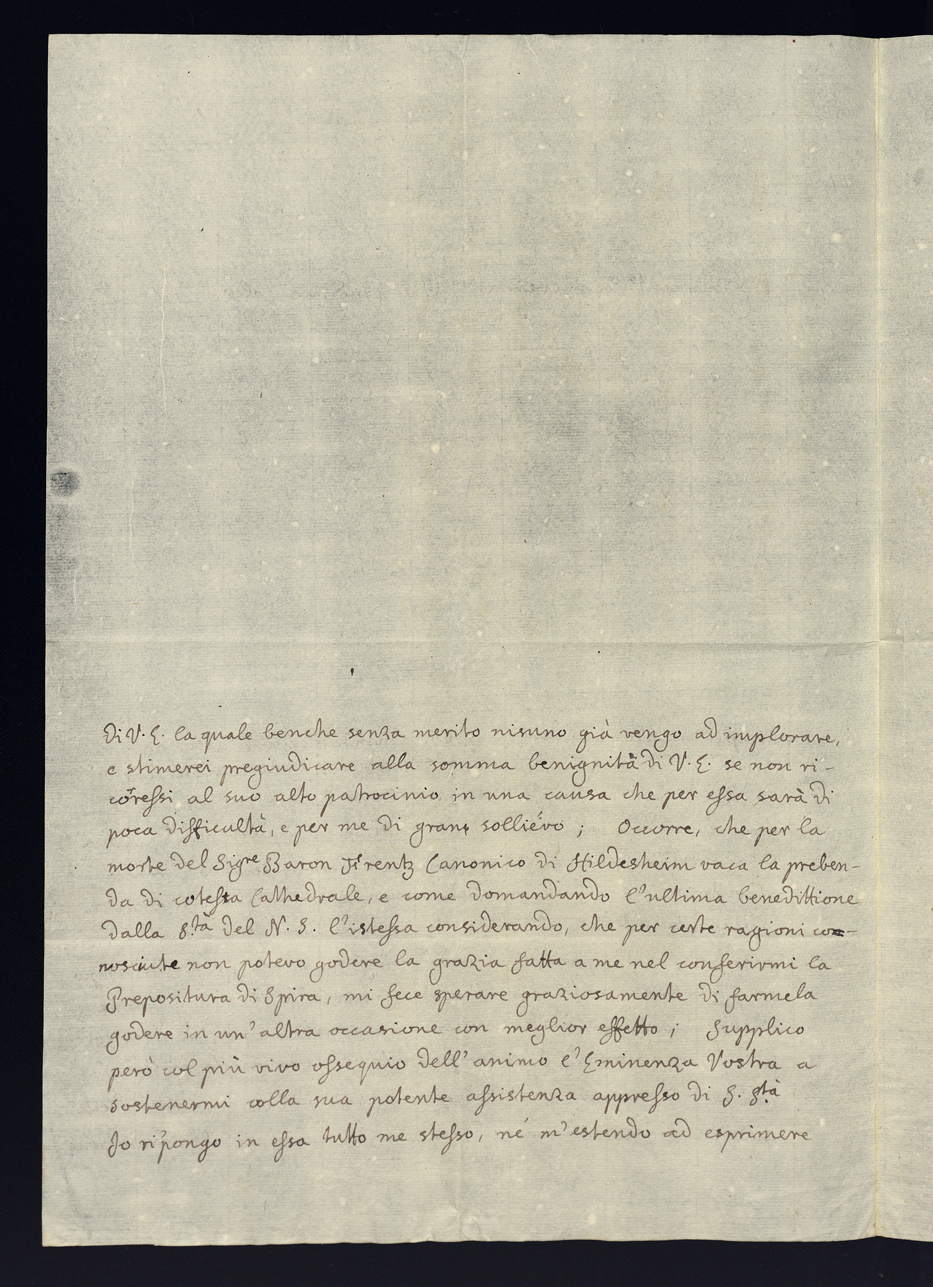 di V. E. la quale benche senza merito nisuno già vengo ad implorare,
e stimerei pregiudicare alla somma benignità di V. E. se non ri-
coressi al suo alto patrocinio in una causa che per essa sarà di
poca difficultà, e per me di grann sollievo; Occorre, che per la
morte del Sigre Baron Frentz Canonico di Hildesheim vaca la preben-
da di cotesta Cathedrale, e come domandando l'ultima benedittione
dalla S.tà del N. S. l'istessa considerando, che per certe ragioni co-
nosciute non potevo godere la grazia fatta a me nel conferirmi la
Prepositura di Spira, mi fece sperare graziosamente di farmela
godere in un'altra occasione con meglior effetto; Supplico
però col più vivo ossequio dell'animo l'Eminenza Vostra a
sostenermi colla sua potente assistenza appresso di S. Stà
Io ripongo in essa tutto me stesso, né m'estendo ad esprimere